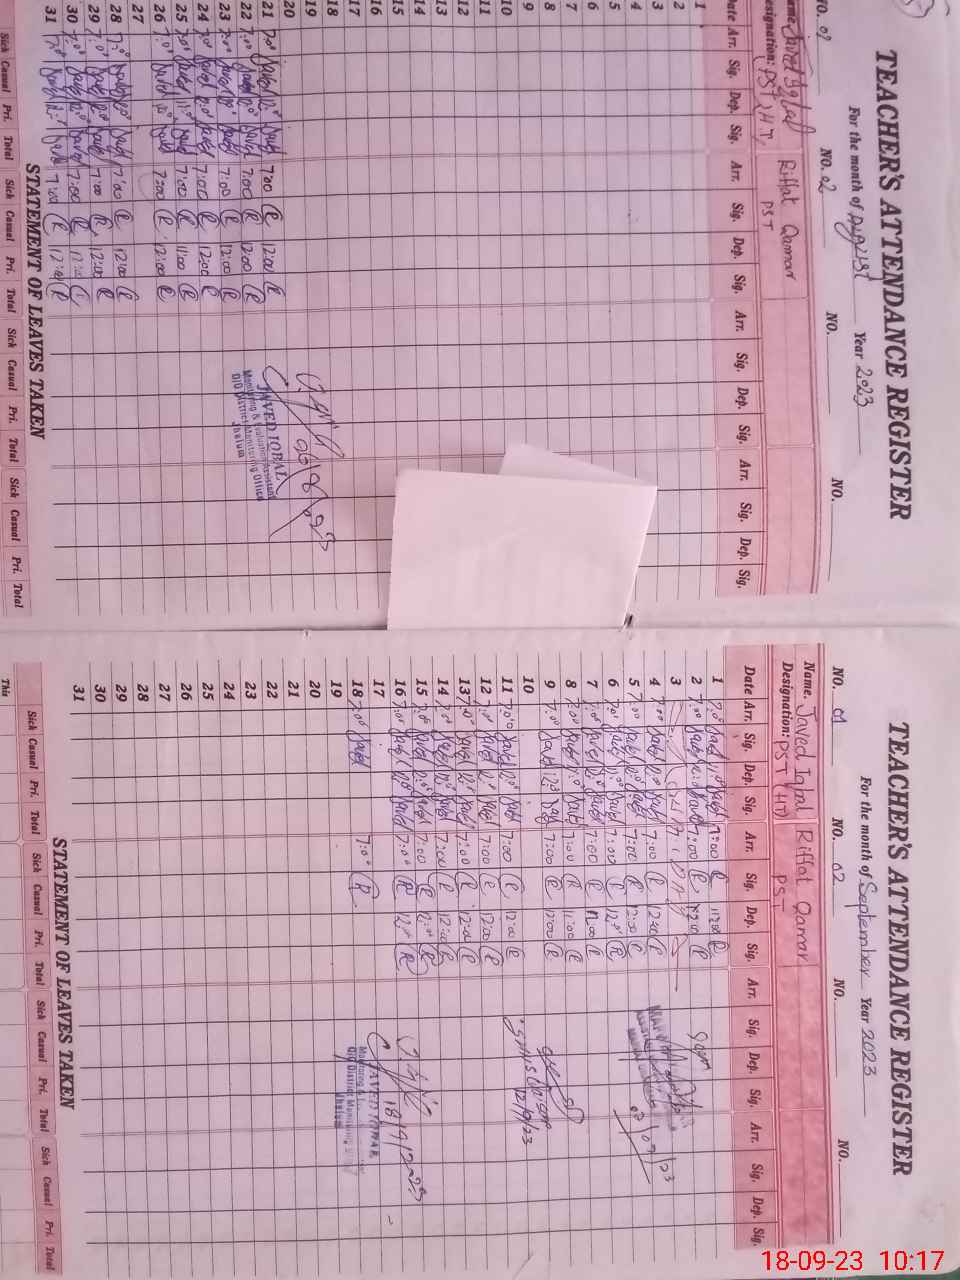 TEACHER'S ATTENDANCE REGISTER
For the month of August Year 2023
NO. 01 NO. 02 NO. NO.
Name. Javed Iqbal Riffat Qamar
Designation: PST (HT) PST
Date Arr. Sig. Dep. Sig. Arr. Sig. Dep. Sig. Arr. Sig. Dep. Sig. Arr. Sig. Dep. Sig.
1
2
3
4
5
6
7
8
9
10
11
12
13
14
15
16
17
18
19
20
21 7:00 Javed 12:00 Javed 7:00 R 12:00 R
22 7:00 Javed 12:00 Javed 7:00 R 12:00 R
23 7:00 Javed 12:00 Javed 7:00 R 12:00 R
24 7:00 Javed 12:00 Javed 7:00 R 12:00 R
25 7:00 Javed 11:00 Javed 7:00 R 11:00 R
26 7:00 Javed 12:00 Javed 7:00 R 12:00 R
27
28 7:00 Javed 12:00 Javed 7:00 R 12:00 R
29 7:00 Javed 12:00 Javed 7:00 R 12:00 R
30 7:00 Javed 12:00 Javed 7:00 R 12:00 R
31 7:00 Javed 12:00 Javed 7:00 R 12:00 R
JAVED IQBAL
Monitoring & Evaluation Assistant
O/O District Monitoring Office
Jhelum
STATEMENT OF LEAVES TAKEN
Sick Casual Pri. Total Sick Casual Pri. Total Sick Casual Pri. Total Sick Casual Pri. Total
TEACHER'S ATTENDANCE REGISTER
For the month of September Year 2023
NO. 01 NO. 02 NO. NO.
Name. Javed Iqbal Riffat Qamar
Designation: PST (HT) PST
Date Arr. Sig. Dep. Sig. Arr. Sig. Dep. Sig. Arr. Sig. Dep. Sig. Arr. Sig. Dep. Sig.
1 7:00 Javed 11:00 Javed 7:00 R 11:00 R
2 7:00 Javed 12:00 Javed 7:00 R 12:00 R
3
4 7:00 Javed 12:00 Javed 7:00 R 12:00 R
5 7:00 Javed 12:00 Javed 7:00 R 12:00 R
6 7:00 Javed 12:00 Javed 7:00 R 12:00 R
7 7:00 Javed 12:00 Javed 7:00 R 12:00 R
8 7:00 Javed 11:00 Javed 7:00 R 11:00 R
9 7:00 Javed 12:00 Javed 7:00 R 12:00 R
10
11 7:00 Javed 12:00 Javed 7:00 R 12:00 R
12 7:00 Javed 12:00 Javed 7:00 R 12:00 R
13 7:00 Javed 12:00 Javed 7:00 R 12:00 R
14 7:00 Javed 12:00 Javed 7:00 R 12:00 R
15 7:00 Javed 12:00 Javed 7:00 R 12:00 R
16 7:00 Javed 12:00 Javed 7:00 R 12:00 R
17
18 7:00 Javed 7:00 R
19
20
21
22
23
24
25
26
27
28
29
30
31
12/9/23
18/9/2023
JAVED IQBAL
O/O District Monitoring
Jhelum
STATEMENT OF LEAVES TAKEN
Sick Casual Pri. Total Sick Casual Pri. Total Sick Casual Pri. Total Sick Casual Pri. Total
This
18-09-23 10:17